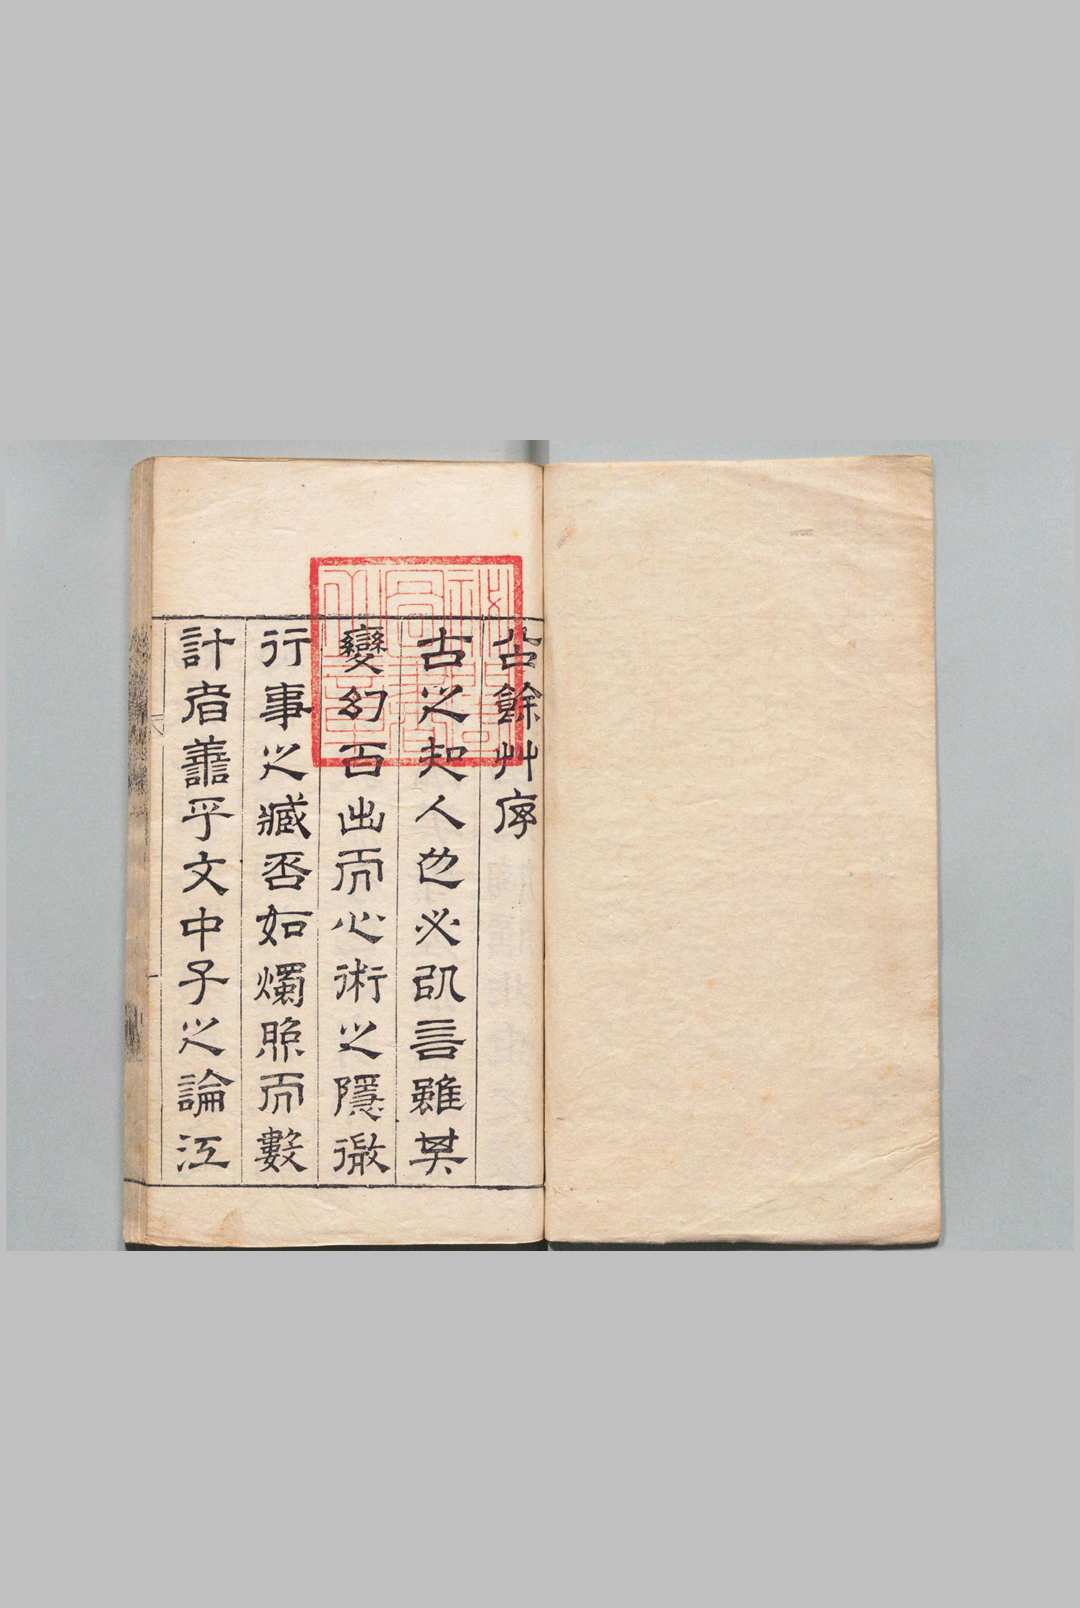 公餘艸序
古之知人也必訊言雖其
變幻百出而心術之隱徹
行事之臧否如燭照而數
計者蕭乎文中子之論江